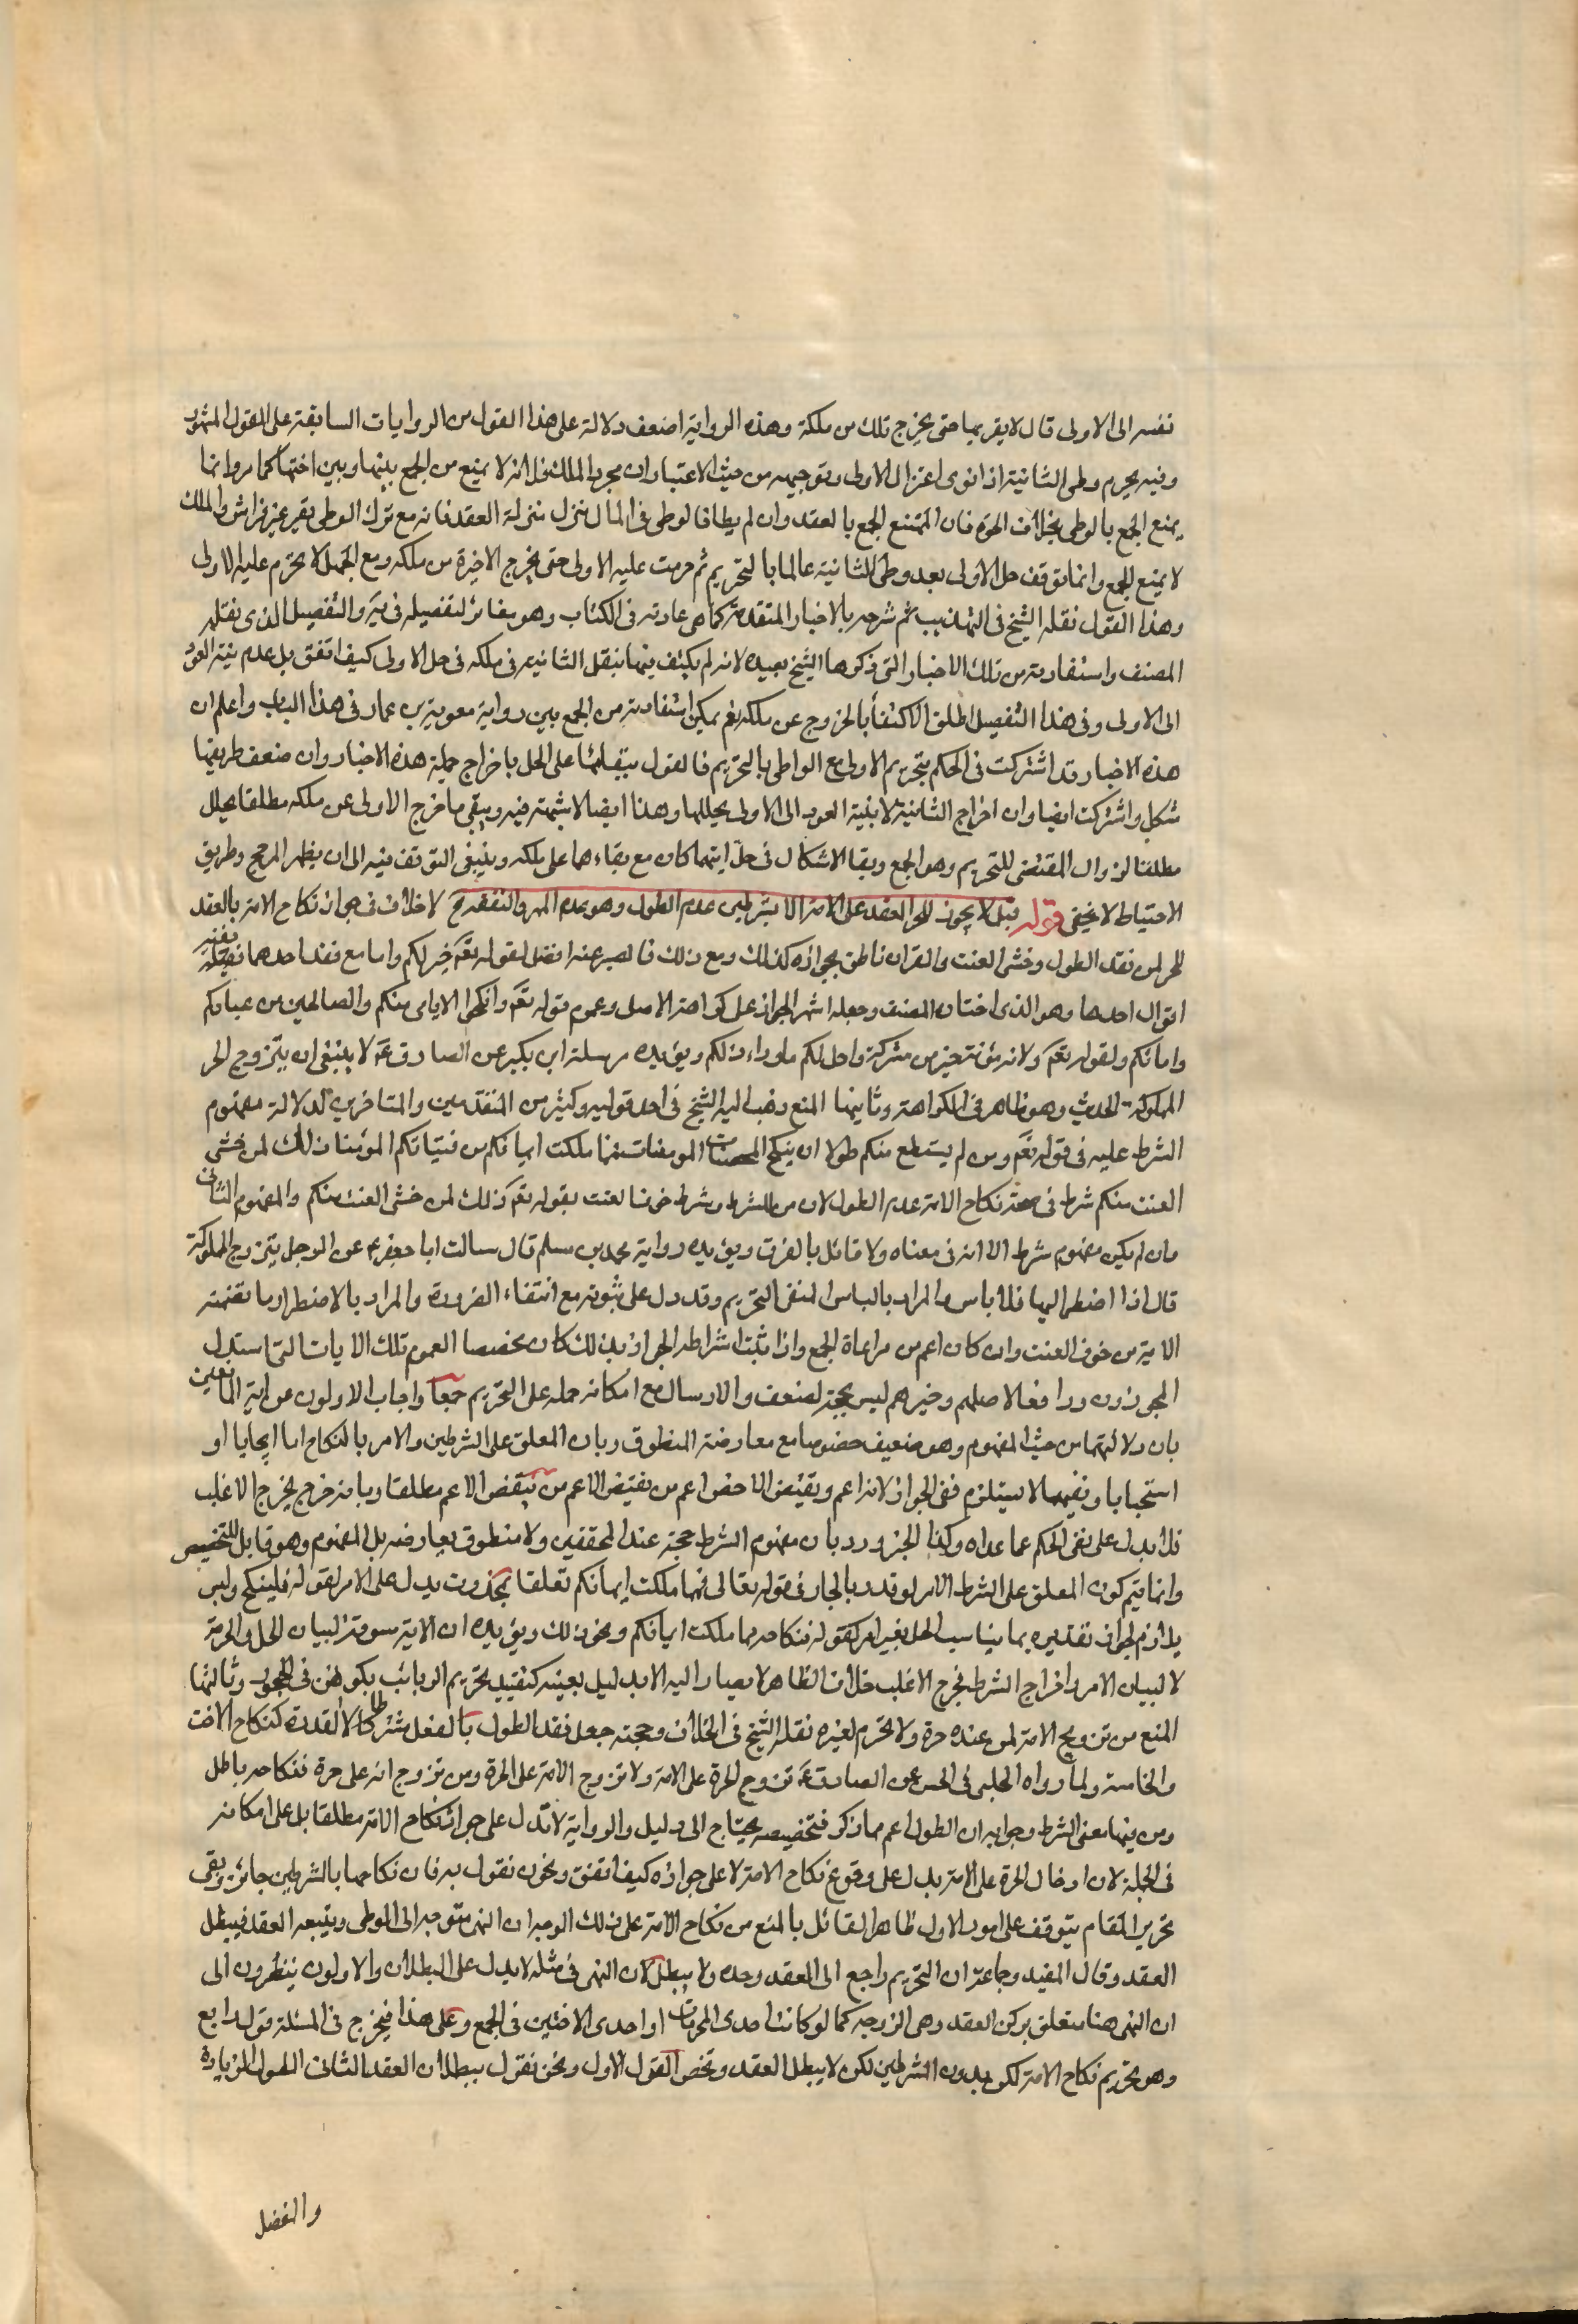 نفسه الى الاولى قال لا يقربها حتى يخرج تلك من ملكه وهذه الرواية اضعف دلالة على هذا القول من الروايات السابقة على القول المشهور
وفيه يحرم وطى الثانية اذا نوى اعتزال الاولى وتوجيهه من حيث الاعتبار ان مجرد الملك لا يمنع من الجمع بينها وبين اختها كما مر وانما
يمنع الجمع بالوطى بخلاف الحرة فان الممتنع الجمع بالعقد وان لم يطا فالوطى فى المال نزل منزلة العقد فانه مع ترك الوطى يقير غير فراش والملك
لا يمنع الجمع وانما توقف حل الاولى بعد وطى الثانية عالما بالتحريم ثم حرمت عليه الاولى حتى يخرج الاخيرة من ملكه ومع الجهل لا يحرم عليه الاولى
وهذا القول نقله الشيخ فى التهذيب ثم شرحه بالاخبار المتقدمة كما هى عادته فى الكتاب وهو مغائر لتفصيله فى ية والتفصيل الذى نقله
المصنف واستفادته من تلك الاخبار التى ذكرها الشيخ بعيده لانه لم يكتف فيها بنقل الثانية فى ملكه فى حل الاولى كيف اتفق بل عدم نية العود
الى الاولى وفى هذا التفصيل اطلق الاكتفأ بالخروج عن ملكه نعم يمكن استفادته من الجمع بين رواية معوية بن عمار فى هذا الباب واعلم ان
هذه الاخبار قد اشتركت فى الحكم بتحريم الاولى مع الواطى بالتحريم فالقول ببقائها على الحل باخراج جملة هذه الاخبار وان ضعف طريقها
مشكل واشتركت ايضا وان اخراج الثانية لا بنية العود الى الاولى يحللها وهذا ايضا لا شبهة فيه ويبقى ما اخرج الاولى عن ملكه مطلقا هل
مطلقا لزوال المقتضى للتحريم وهو الجمع وبقا الاشكال فى حل ايتهما كان مع بقاءهما على ملكه وينبغى التوقف فيه الى ان يظهر المرجح وطريق
الاحتياط لا يخفى قوله قيل لا يجوز للحر العقد على الامة الا بشرطين عدم الطول وهو عدم المهر والنفقة لا خلاف فى جواز نكاح الامة بالعقد
للحر لمن فقد الطول وخشى العنت والقران ناطق بجوازه كذلك ومع ذلك فالصبر عنه افضل لقوله تعم خير لكم واما مع فقد احدهما ففيه
اقوال احدها وهو الذى اختاره المصنف وجعله اشهر الجواز على كراهة للاصل وعموم قوله تعم وانكحوا الايامى منكم والصالحين من عبادكم
وامائكم ولقوله تعم ولامة مؤمنة خير من مشركة واحل لكم ماوراء ذلكم ويؤيده مرسلة ابن بكير عن الصادق ع لا ينبغى ان يتزوج الحر
المملوكة الحديث وهو ظاهر فى الكراهة وثانيها المنع ذهب اليه الشيخ فى احد قوليه وكثير من المتقدمين والمتاخرين لدلالة مفهوم
الشرط عليه فى قوله تعم ومن لم يستطع منكم طولا ان ينكح المحصنات المومنات فمما ملكت ايمانكم من فتياتكم المؤمنات ذلك لمن خشى
العنت منكم شرط فى صحة نكاح الامة عدم الطول لان من للشرط وشرط خوف العنت بقوله تعم ذلك لمن خشى العنت منكم والمفهوم الثانى
وان لم يكن مفهوم شرط الا انه فى معناه ولا قائل بالفرق ويؤيده رواية محمد بن مسلم قال سالت ابا جعفر ع عن الرجل يتزوج المملوكة
قال اذا اضطر اليها فلا باس والمراد بالباس المنفى التحريم وقد دل على ثبوته مع انتفاء الضرورة والمراد بالاضطرار ما تضمنته
الاية من خوف العنت وان كان اعم من مراعاة الجمع واذا ثبت اشتراط الجواز بذلك كان مخصصا لعموم تلك الايات التى استدل
المجوزون ورافعا لاصلهم وخبرهم ليس بحجة لضعف والارسال مع امكان حمله على التحريم جمعا واجاب الاولون عن اية المانعين
بان دلالتها من حيث المفهوم وهو ضعيف خصوصا مع معارضة المنطوق وبان المعلق على الشرطين والامر بالنكاح اما ايجابا او
استحبابا ونفيهما لا يستلزم نفى الجواز لانه اعم ونقيض الاخص اعم من نقيض الاعم من نقيض الاعم مطلقا وبانه خرج مخرج الاغلب
فلا يدل على نفى الحكم عما عداه وكذا الخبز ورد بان مفهوم الشرط حجة عند المحققين ولا منطوق يعارضه بل المفهوم وهو قابل للتخصيص
وانما يتم كون المعلق على الشرط الامر لو قدر بالجار فى قوله تعالى فمما ملكت ايمانكم تعلقا بمحذوف يدل على الامر لقوله فلينكح وليس
بلازم لجواز تقديره بما يناسب الحل بغير امر كقوله فنكاحه مما ملكت ايمانكم ونحو ذلك ويؤيده ان الاية مسوقة لبيان الحل والحرمة
لا لبيان الامر واخراج الشرط مخرج الاغلب خلاف الظاهر لا يصار اليه الا بدليل بعينه كتقييد تحريم الربائب بكونهن فى الحجور وثالثها
المنع من تزويج الامة لمن عنده حرة ولا تحرم لغيره نقله الشيخ فى الخلاف وحجته جعل فقد الطول بالفعل شرطا كالا القدرة كنكاح الاخت
والخامسة ولما رواه الحلبى فى الحسن عن الصادق ع تزوج الحرة على الامة ولا تزوج الامة على الحرة ومن تزوج امة على حرة فنكاحه باطل
ومن فيها معنى الشرط وجوابه ان الطول اعم مما ذكر فتخصيصه يحتاج الى دليل والرواية لا تدل على جواز نكاح الامة مطلقا بل على امكانه
فى الجملة لان ادخال الحرة على الامة يدل على وقوع نكاح الامة لا على جوازه كيف اتفق ونحن نقول به فان نكاحها بالشرطين جائز وبقى
تحرير المقام يتوقف على امور الاول ظاهر القائل بالمنع من نكاح الامة على ذلك الوجه ان النهى متوجه الى الوطى ويتبعه العقد فيبطل
العقد وقال المفيد وجماعة ان التحريم راجع الى العقد وحده ولا يبطل لان النهى فى مثله لا يدل على البطلان والاولون ينظرون الى
ان النهى هنا متعلق بركن العقد وهى الزوجه كما لو كانت احدى المحرمات او احدى الاختين فى الجمع وعلى هذا فيخرج فى المسئلة قول رابع
وهو تحريم نكاح الامة لكن بدون الشرطين لكن لا يبطل العقد ونحص القول الاول ونحن نقول ببطلان العقد الثانى الطول الزيادة
والفضل